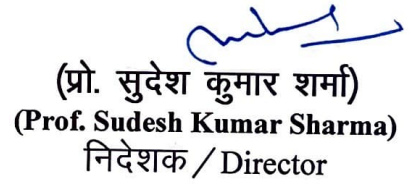 (प्रो. सुदेश कुमार शर्मा)
(Prof. Sudesh Kumar Sharma)
निदेशक / Director